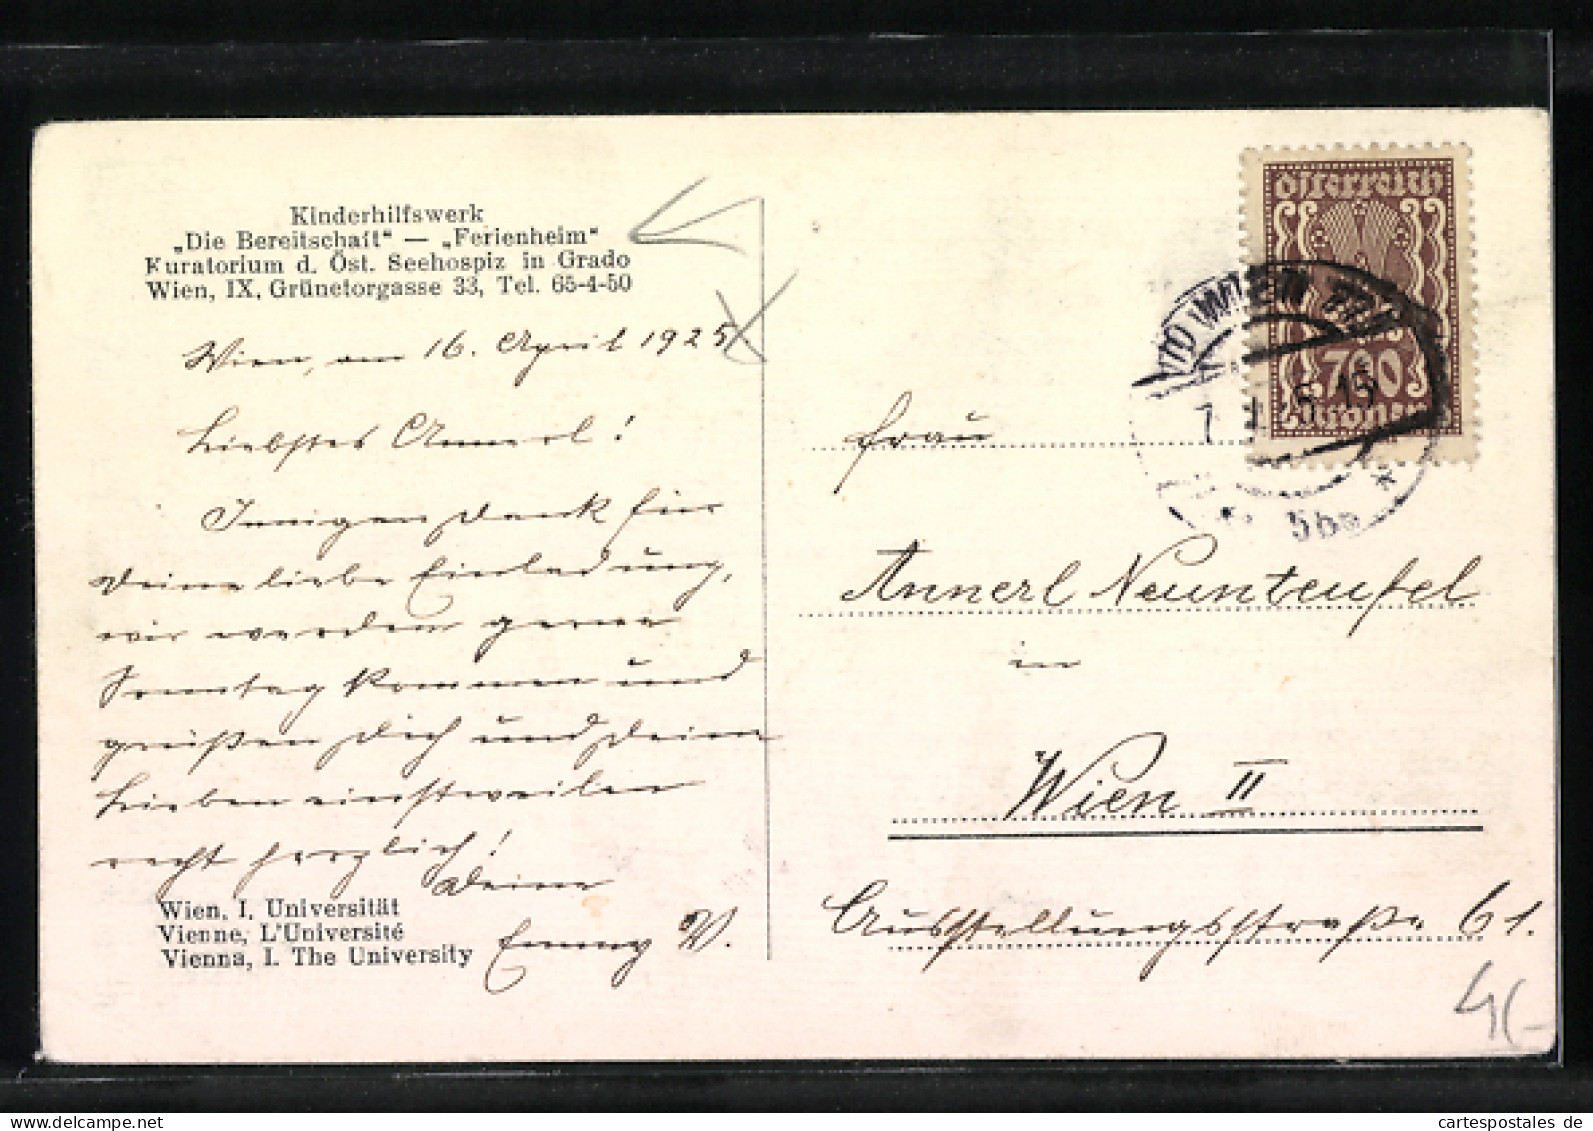 Kinderhilfswerk
„Die Bereitschaft“ — „Ferienheim“
Kuratorium d. Öst. Seehospiz in Grado
Wien, IX, Grünetorgasse 33, Tel. 65-4-50
Wien, am 16. April 1925
Liebstes Annerl!
Innigen Dank für
Deine liebe Einladung,
wir werden gerne
Sonntag kommen und
grüßen Dich und Deine
Lieben einstweilen
recht herzlich!
Deine
Emmy W.
Wien, I. Universität
Vienne, L'Université
Vienna, I. The University
Österreich
700
Kronen
WIEN
Frau
Annerl Neunteufel
in
Wien II
Ausstellungsstraße 61.
cartespostales de